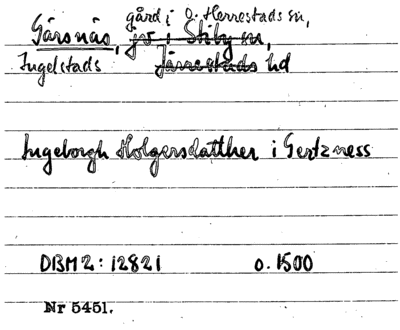 gård i Ö. Herrestads sn,
Gärsnäs, jo i Stiby sn,
Ingelstads Järrestads hd
Ingeborgh Holgersdatther i Gertzness
DBM 2: 12821 o. 1500
Nr 5451.